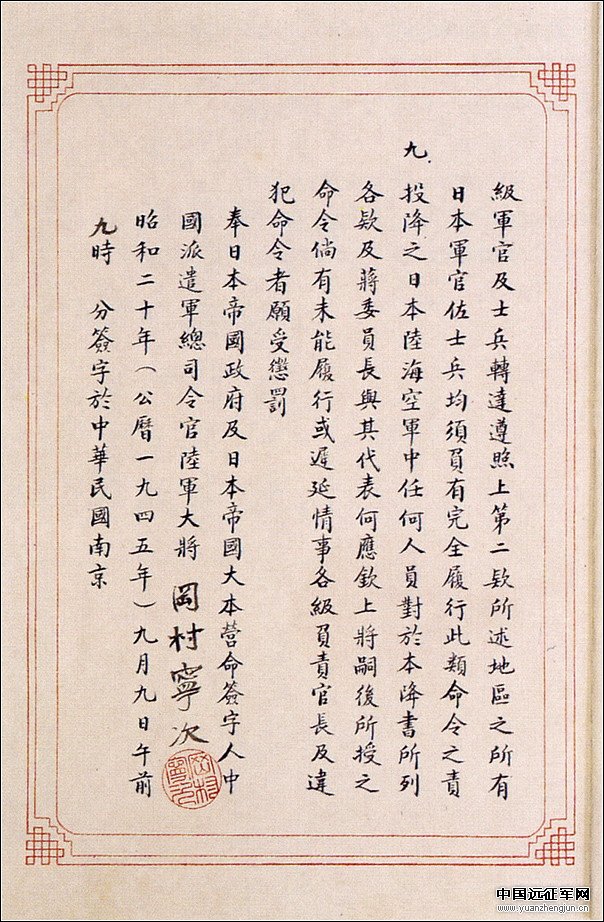 級軍官及士兵轉達遵照上第二欵所述地區之所有
日本軍官佐士兵均須負有完全履行此類命令之責
九.投降之日本陸海空軍中任何人員對於本降書所列
各欵及蔣委員長與其代表何應欽上將嗣後所授之
命令倘有未能履行或遲延情事各級負責官長及違
犯命令者願受懲罰
奉日本帝國政府及日本帝國大本營命簽字人中
國派遣軍總司令官陸軍大將 岡村寧次
岡村寧次
昭和二十年(公曆一九四五年)九月九日午前
九時 分簽字於中華民國南京
中国远征军网
www.yuanzhengjun.cn